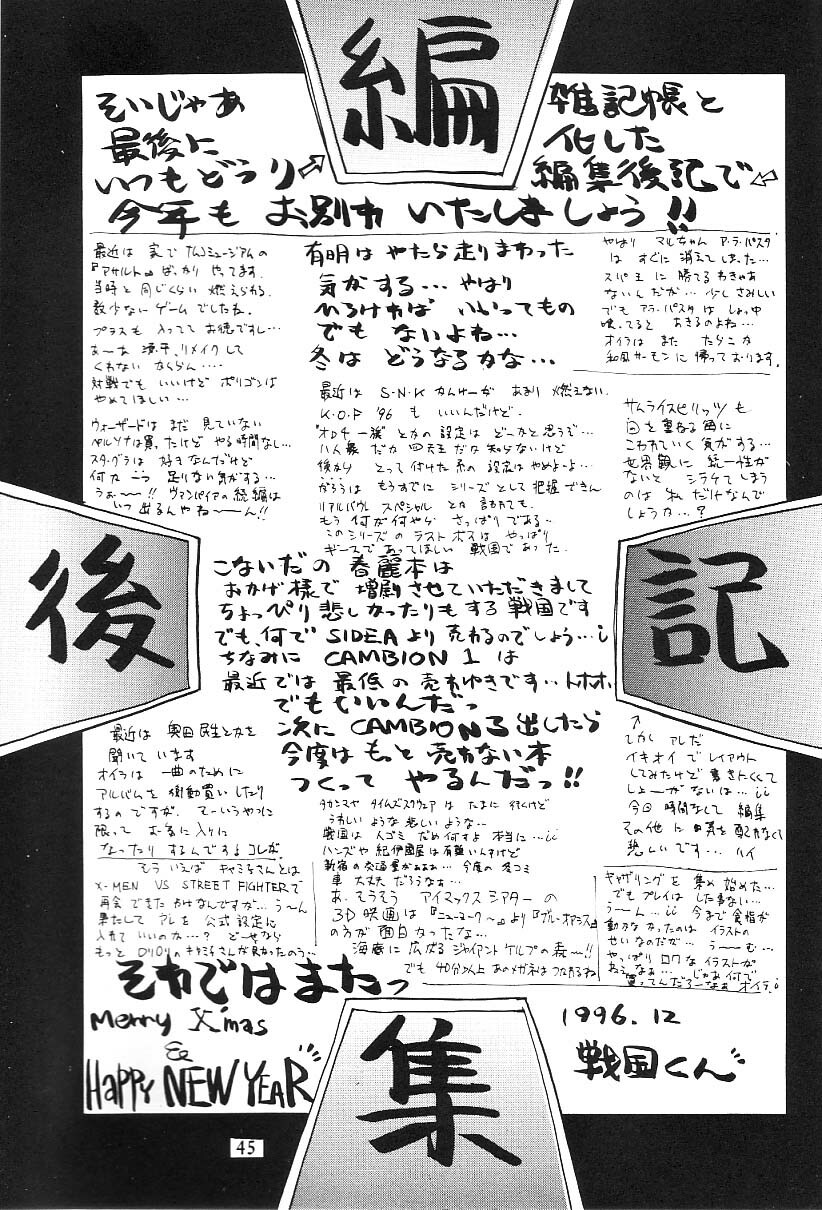 編
集
後
記
そいじゃあ
最後に
いつもどうり
雑記帳と
化した
編集後記で
今年も お別れ いたしましょう!!
最近は 実で ナムコミュージアムの
『アサルト』ばっかり やってます。
当時と 同じくらい 燃えられる
数少ないゲームでしたね。
プラスも 入ってて お徳ですし…
あーな 源平、リメイクして
くれない ならん…
対戦でも いいけど ポリゴンは
やめてほしい…
ウィザードは まだ 見ていない
ペルソナは買ったけど やる時間なし…
スタグラは 好きなんだけど
何か一つ 足りない気がする…
うぉ〜〜!! ヴァンパイアの続編は
いつ 出るんやね〜ん!!
有明は やたら走りまわった
気がする… やはり
ひろければ いいってもの
でも ないよね…
冬は どうなるかな…
やはり マルちゃん ア・ラ・パスタ
は すぐに 消えてしまった…
スパ王 に 勝てるわきゃあ
ないんだが… 少し さみしい
でも アラ・パスタは しょっ中
喰ってると あきるのよね…
オイラは また たらこか
和風サーモンに 帰っております。
最近は S・N・K かんけーが あまり 燃えない
K.O.F '96 も いいんだけど.
"オロチ一族" とかの設定は どーかと思うぞ…
八人衆 だか 四天王 だか 知らないけど
後から とって付けた系の 設定は やめよーよ…
がろうは もうすでに シリーズとして 把握できん
リアルバウト スペシャル とか 言われても
もう 何が何やら さっぱりである…
このシリーズの ラストボスは やっぱり
ギースであってほしい 戦国であった.
サムライスピリッツも
回を重ねる毎に
こわれていく 気がする…
世界観に 統一性が
ないと シラケてしまう
のは 私だけなんで
しょうか…?
こないだの 春麗本は
おかげ様で 増刷させていただきまして
ちょっぴり 悲しかったりもする 戦国です
でも、何で SIDEA より 売れるのでしょう…
ちなみに CAMBION 1 は
最近では 最低の 売れゆきです… トホホ
でもいいんだっ
次に CAMBION 3 出したら
今度は もっと 売れない本
つくって やるんだっ!!
最近は 奥田民生とかを
聞いて います
オイラは 一曲のために
アルバムを 衝動買い したり
するのですが、 そーいうやつに
限って お気に入りに
なったり するんですョ コレが
もう いえば キャミィさんとは
X-MEN VS STREET FIGHTERで
再会できた わけなんですが… う〜ん
果たして アレを 公式設定に
入れて いいのか…? どーせなら
もっと ロリロリの キャミィさんが 良かったのう…
タカシマヤ タイムズスクウェア は たまに 行くけど
うれしい ような 悲しい ような…
戦国は 人ゴミ だめ 何すよ 本当に…
ハンズや 紀伊國屋は 有難いんすけど
新宿の交通量がああぁ… 今度の 冬コミ
車 大丈夫 だろうなぁ…
あ、そうそう アイマックス シアター の
3D 映画は 『ニューヨーク〜』より『ブルー・オアシス』
の方が 面白かったな…
海底に 広がる ジャイアント ケルプの 森〜!!
でも 40分以上 あのメガネは つかれるね
しかし アレだ
イキオイで レイアウト
してみたけど 書きにくくて
しょーがないは…
今回 時間なしで 編集
その他に 気を 配れなくて
悲しいです… ハイ
ギャザリングを 集め 始めた…
でもプレイは した事ない…
う〜ん… 今まで 食指が
動かなかったのは イラストの
せいなのだが… う〜む…
やっぱり ロクな イラストが
ねぇなぁ… じゃあ 何で
買ってんだろーなぁ オイラ
それではまたっ
Merry X'mas
&
HAPPY NEW YEAR
1996.12
戦国くん
45